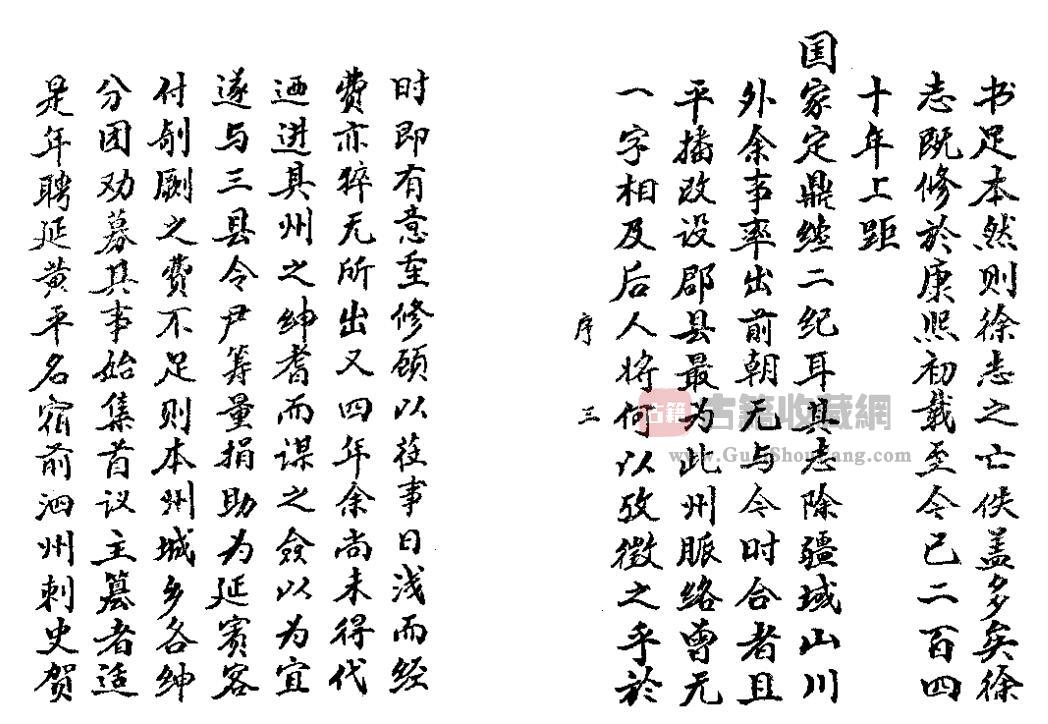 书足本然则徐志之亡佚盖多矣徐
志既修於康熙初载至今已二百四
十年上距
国家定鼎缠二纪耳其志除疆域山川
外余事率出前朝无与今时合者且
平播改设郡县最为此州脈络曾无
一字相及后人将何以攷徵之乎於
序 三
时即有意重修顾以莅事日浅而经
费亦猝无所出又四年余尚未得代
迺进具州之绅耆而谋之佥以为宜
遂与三县令尹筹量捐助为延宾客
付剞劂之费不足则本州城乡各绅
分团劝募其事始集首议主纂者适
是年聘延黄平名宿前泗州刺史贺
古籍收藏網
www.GuJiShouCang.com